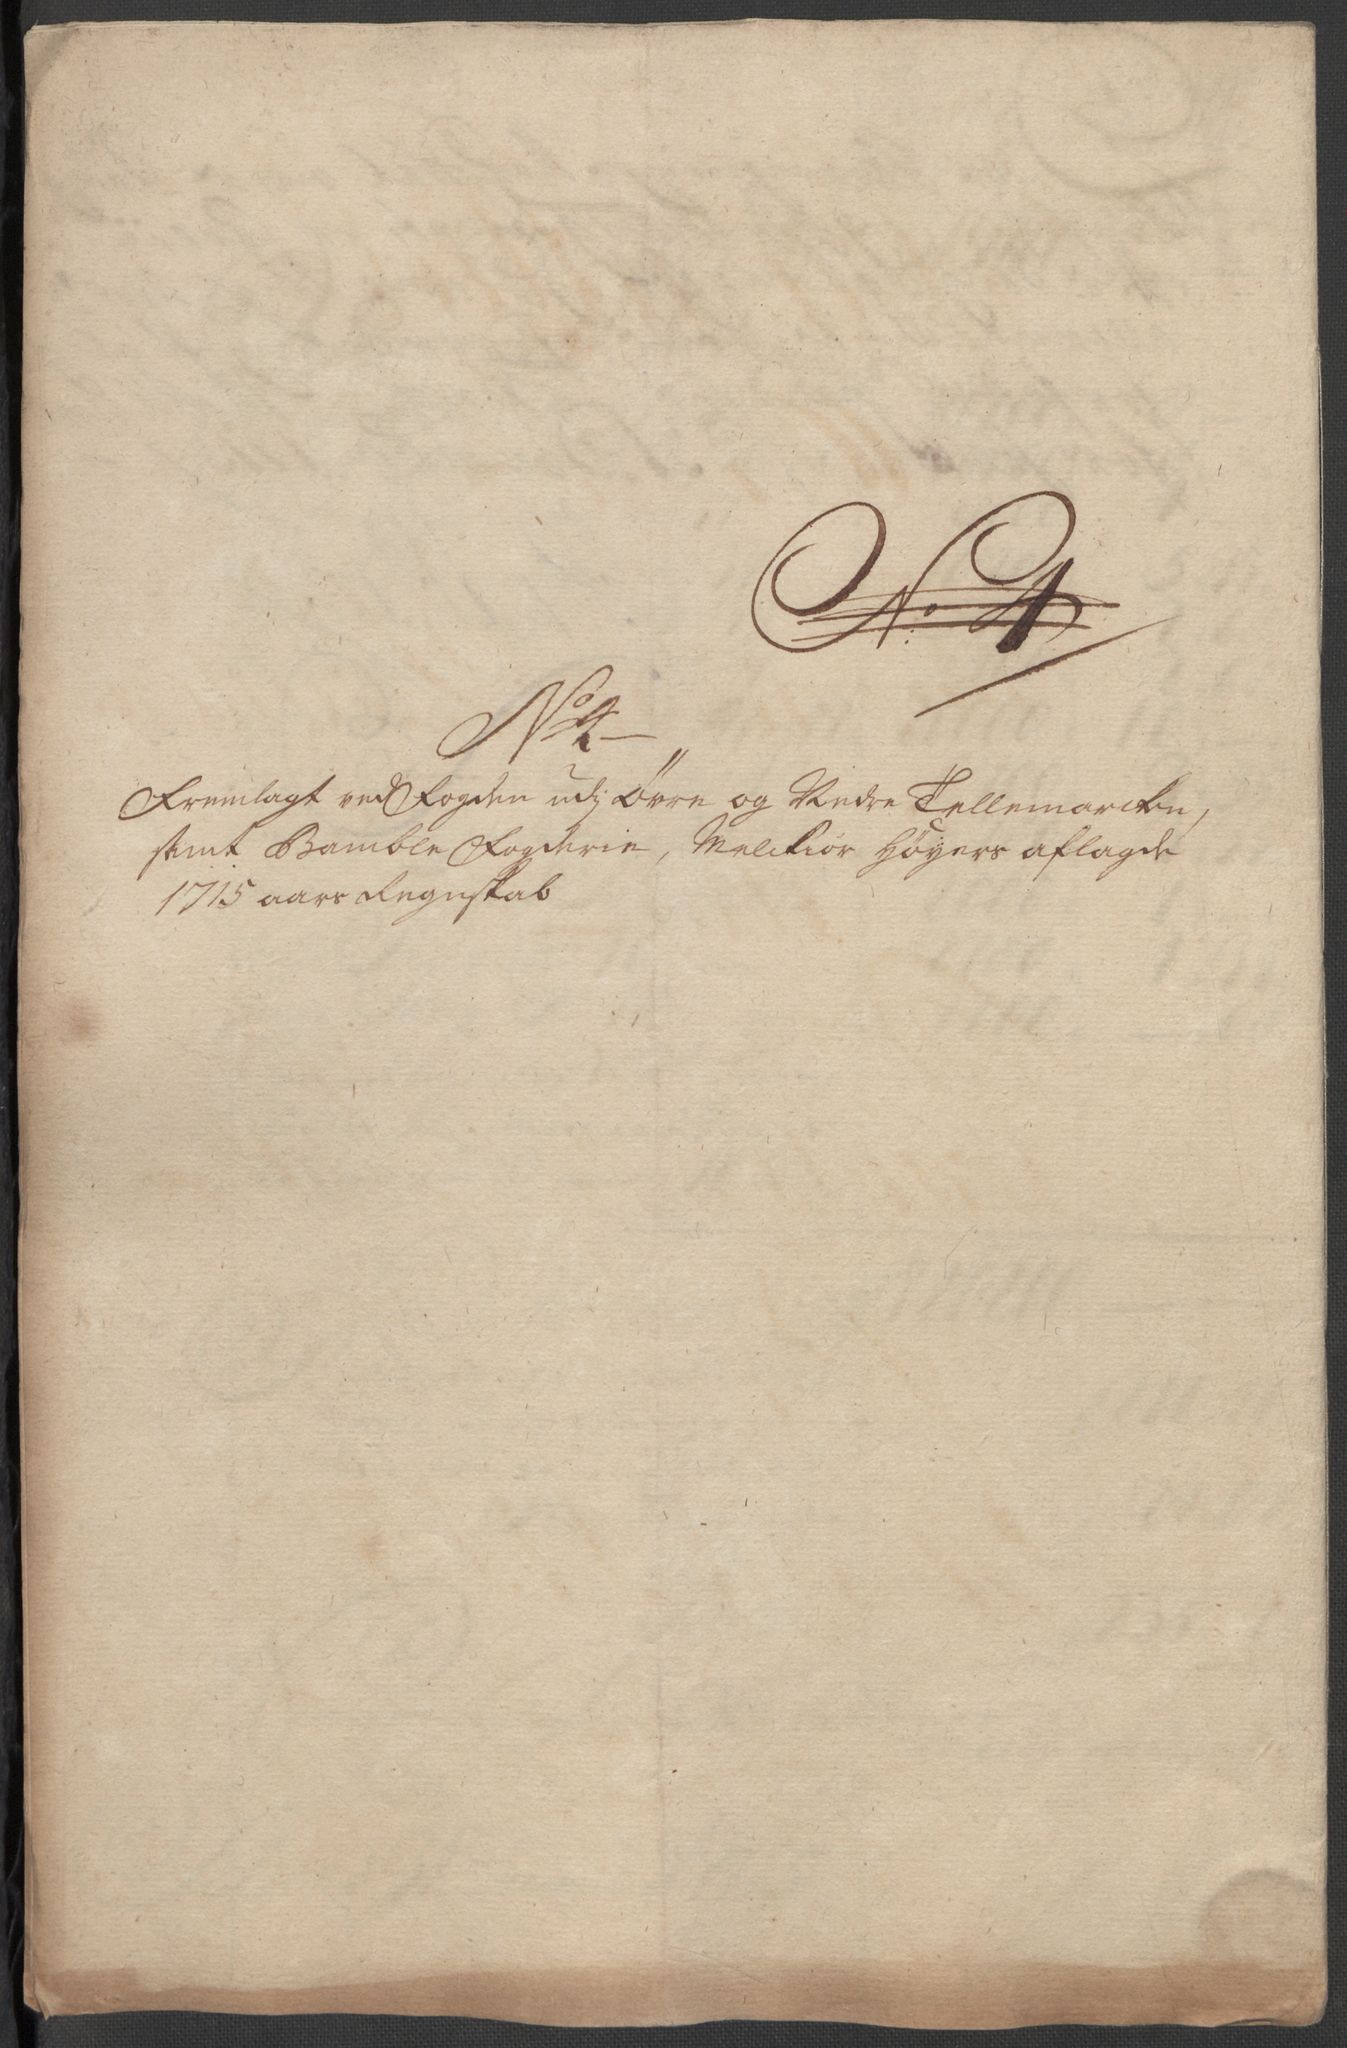 No. 4
No 4
Fremlagt ved Fogden udj Øvre og Nedre Tellemarcken,
samt Bamble Fogderie, Melchior Høyers aflagde
1715 aars Regnskab